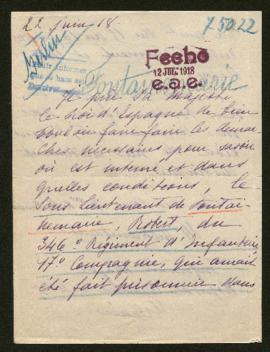 22 juin 18.
75022
Berlin
Fecho
12 JUL 1918
e.a.e.
Fontainemarie
Je prie Sa Majesté
le Roi d'Espagne de bien
vouloir faire faire les démar
ches nécessaires pour savoir
où est interné et dans
quelles conditions, le
Sous lieutenant de Fontai-
nemarie, Robert, du
346e Régiment d'Infanterie
17e Compagnie, qui aurait
été fait prisonnier dans